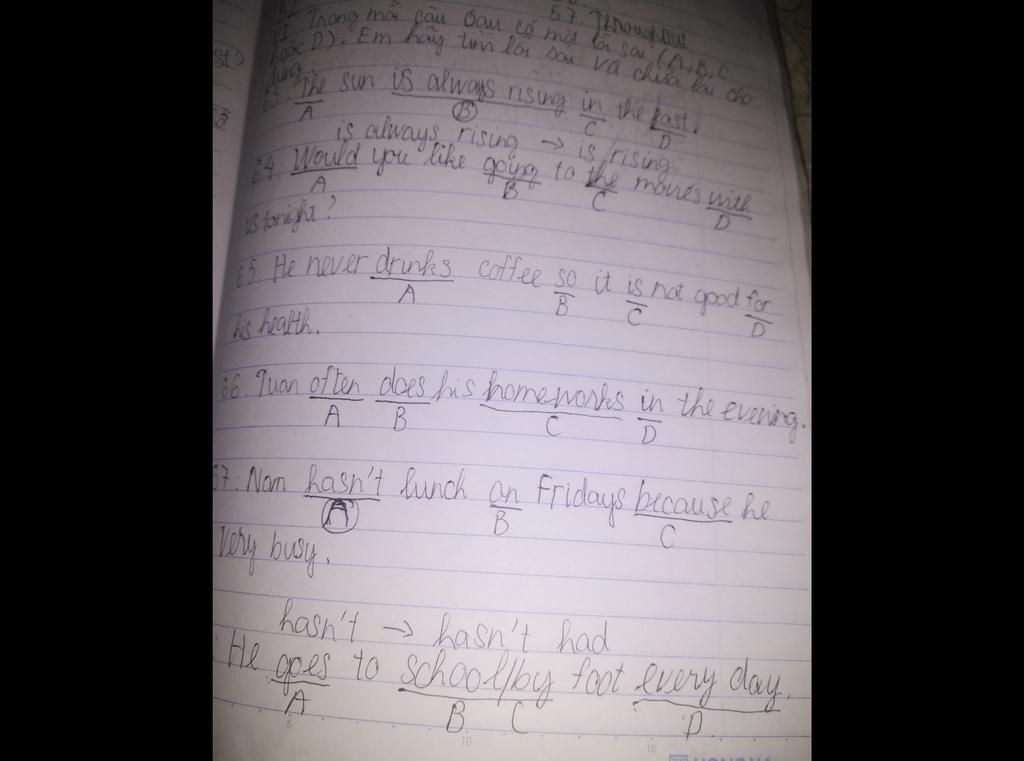 57. Throughout
Trong mỗi câu sau có một lỗi sai (A, B, C
hoặc D). Em hãy tìm lỗi sai và chữa lại cho
đúng
63. The sun is always rising in the East.
A B C D
is always rising → is rising
64. Would you like going to the movies with
A B C D
us tonight?
65. He never drinks coffee so it is not good for
A B C D
his health.
66. Tuan often does his homeworks in the evening.
A B C D
67. Nam hasn't lunch on Fridays because he
A B C
very busy.
hasn't → hasn't had
He goes to school/by foot every day.
A B C D
5 10 15